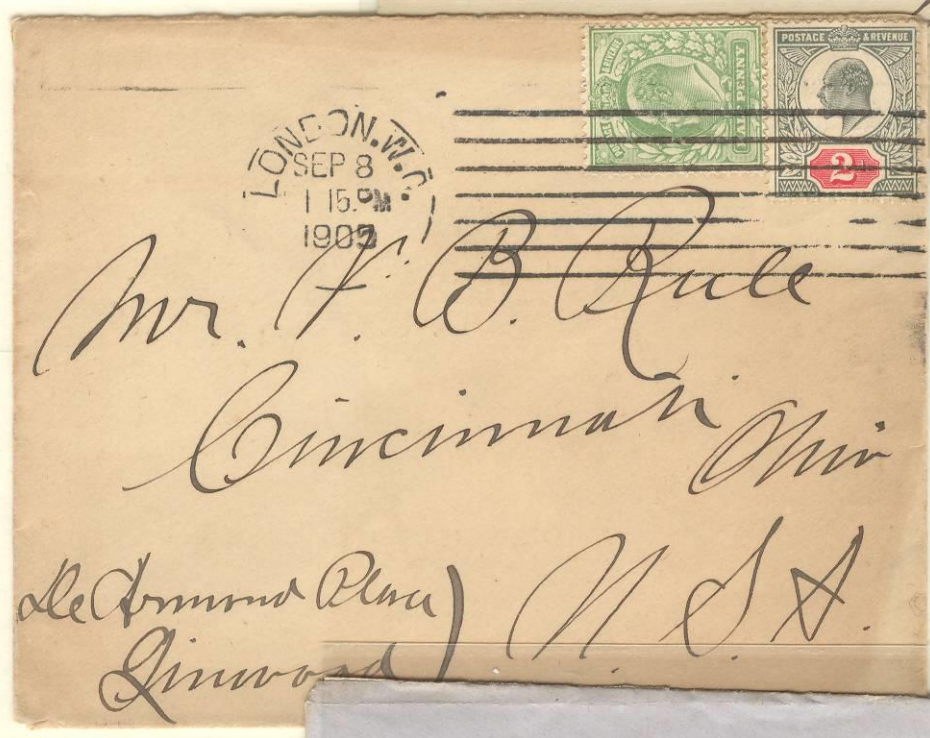 POSTAGE & REVENUE
2
LONDON.W.C.
SEP 8
1 15.PM
1905
Mr. F. B. Rule
Cincinnati Ohio
U. S. A.
De Armond Place
Linwood